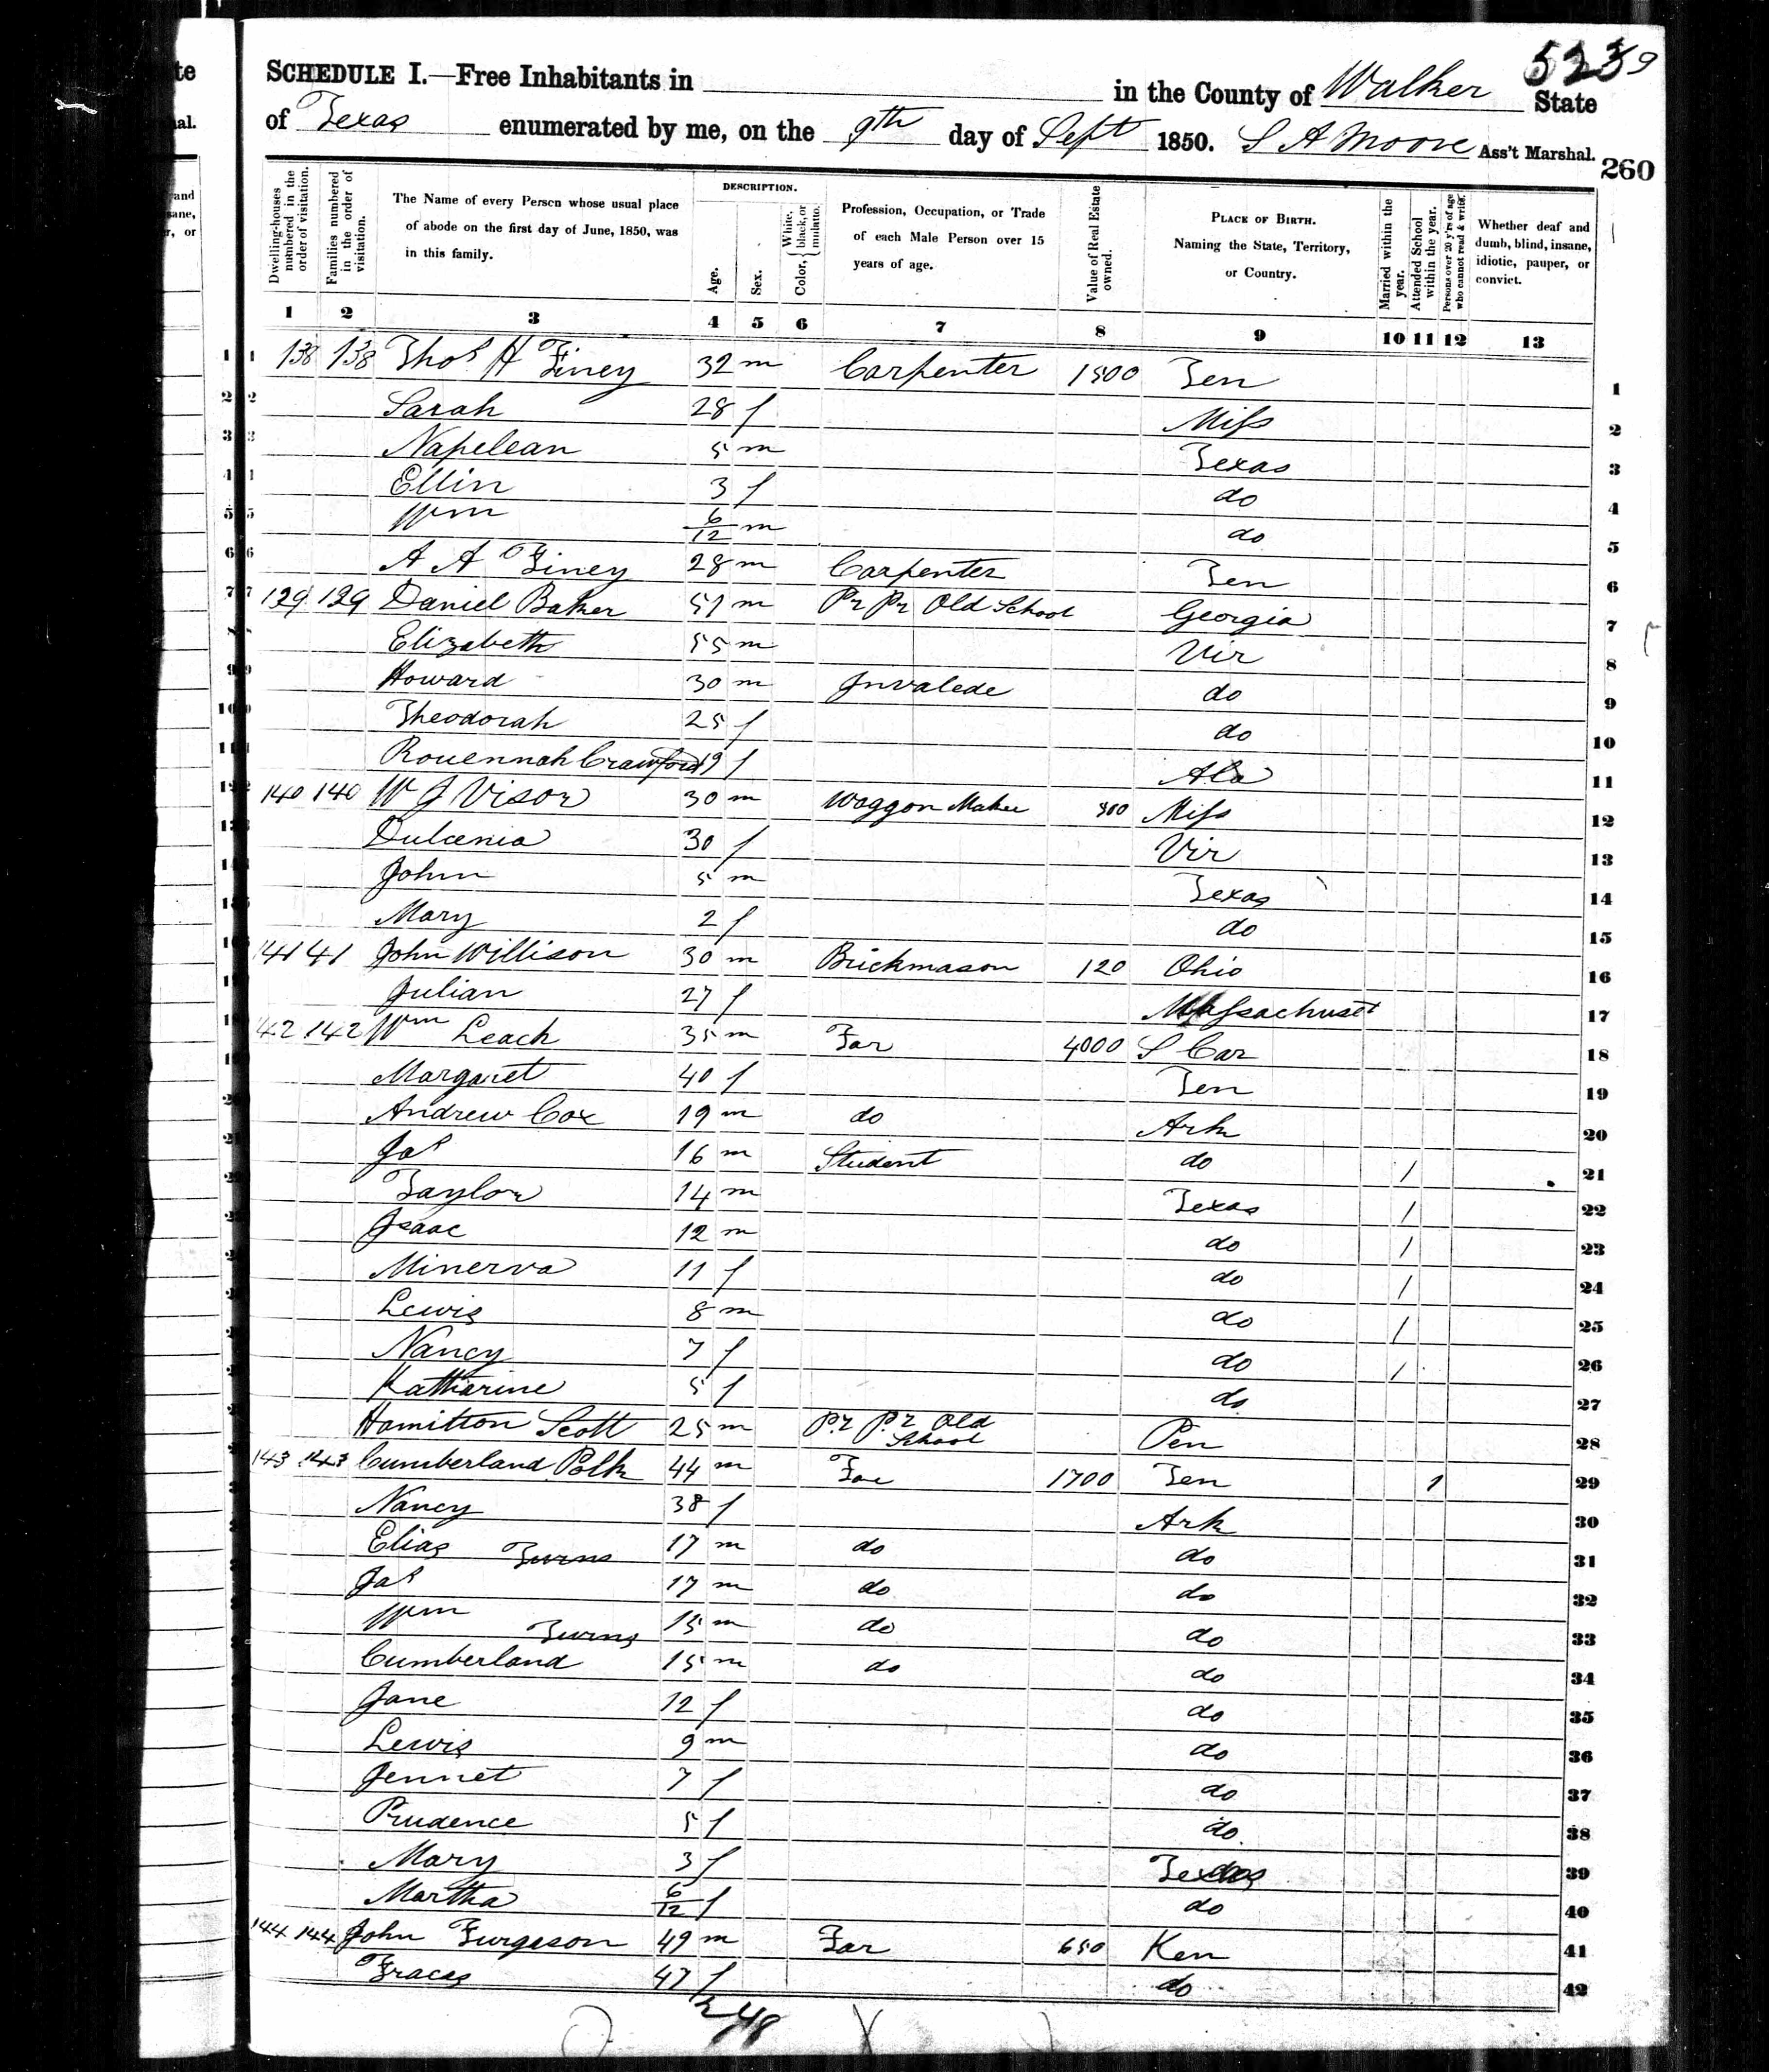 te
al.
and
sane,
r, or
5239
SCHEDULE I.—Free Inhabitants in in the County of Walker State
of Texas enumerated by me, on the 9th day of Sept 1850. S A Moore Ass't Marshal.
260
Dwelling-houses numbered in the order of visitation.
Families numbered in the order of visitation.
The Name of every Person whose usual place of abode on the first day of June, 1850, was in this family.
DESCRIPTION.
Age.
Sex.
Color, { White, black, or mulatto.
Profession, Occupation, or Trade of each Male Person over 15 years of age.
Value of Real Estate owned.
PLACE OF BIRTH. Naming the State, Territory, or Country.
Married within the year.
Attended School within the year.
Persons over 20 y'rs of age who cannot read & write.
Whether deaf and dumb, blind, insane, idiotic, pauper, or convict.
1 2 3 4 5 6 7 8 9 10 11 12 13
1 138 138 Thos H Finey 32 m Carpenter 1500 Ten 1
2 Sarah 28 f Miss 2
3 Napelean 5 m Texas 3
4 Ellin 3 f do 4
5 Wm 6/12 m do 5
6 A A Finey 28 m Carpenter Ten 6
7 139 139 Daniel Baker 57 m Pr Pr Old School Georgia 7
8 Elizabeth 55 m Vir 8
9 Howard 30 m Invalede do 9
10 Theodorah 25 f do 10
11 Rouennah Crawford 19 f Ala 11
140 140 W J Visor 30 m Waggon Maker 300 Miss 12
Dulcenia 30 f Vir 13
John 5 m Texas 14
Mary 2 f do 15
141 41 John Willison 30 m Brickmason 120 Ohio 16
Julian 27 f Massachuset 17
42 142 Wm Leach 35 m Far 4000 S Car 18
Margaret 40 f Ten 19
Andrew Cox 19 m do Ark 20
Jas 16 m Student do 1 21
Taylor 14 m Texas 1 22
Isaac 12 m do 1 23
Minerva 11 f do 1 24
Lewis 8 m do 1 25
Nancy 7 f do 1 26
Katharine 5 f do 27
Hamilton Scott 25 m Pr Pr Old School Pen 28
143 143 Cumberland Polk 44 m Far 1700 Ten 1 29
Nancy 38 f Ark 30
Elias Burns 17 m do do 31
Jas 17 m do do 32
Wm Burns 15 m do do 33
Cumberland 15 m do do 34
Jane 12 f do 35
Lewis 9 m do 36
Jennet 7 f do 37
Prudence 5 f do 38
Mary 3 f Texas 39
Martha 6/12 f do 40
144 144 John Furgeson 49 m Far 650 Ken 41
Fraces 47 f do 42
248